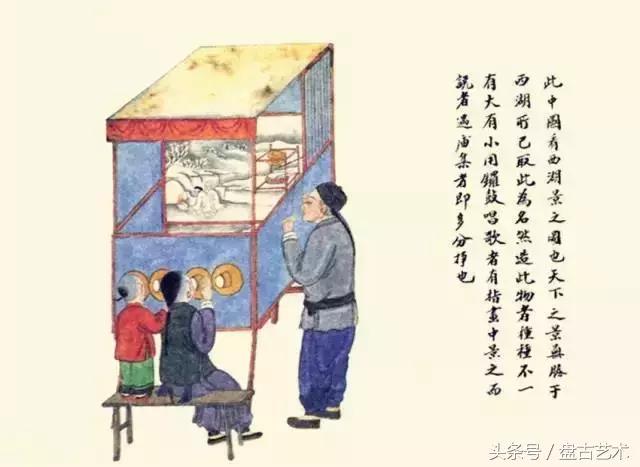 此中國看西湖景之圖也天下之景無勝于
西湖所已取此為名然造此物者種種不一
有大有小用鑼鼓唱歌者有指畫中景之而
説者遇庙集者即多分掙也
头条号／盘古艺术